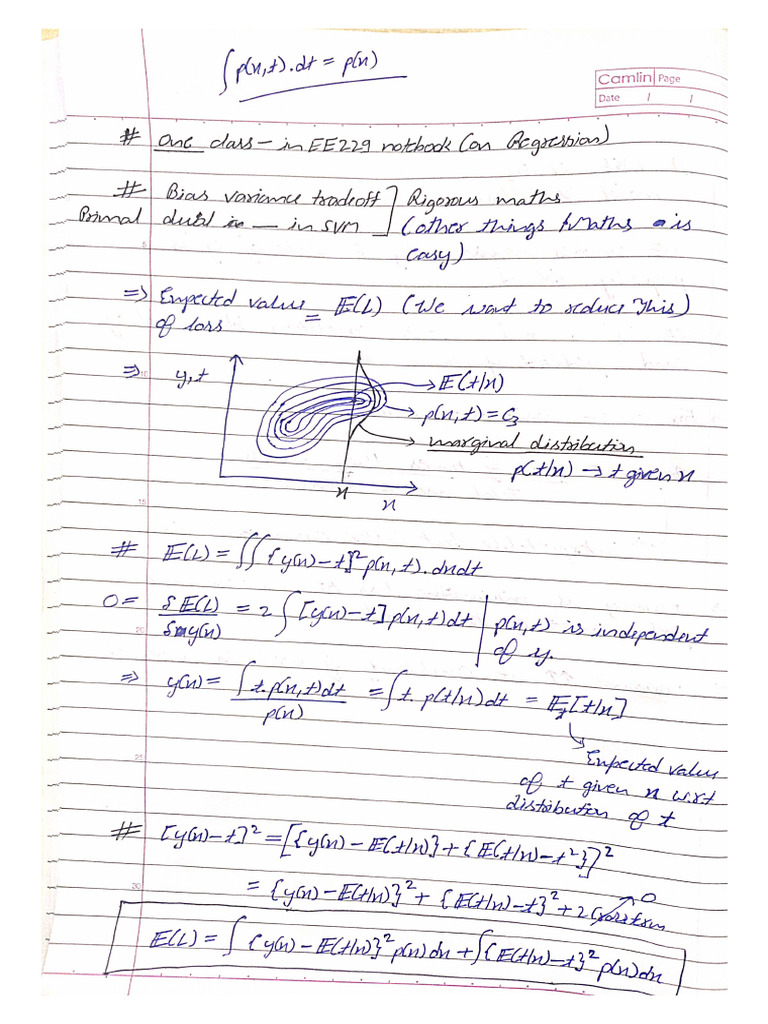 ∫p(x,t).dt = p(x)
Camlin Page
Date / /
# One class - in EE229 notebook (on Regression)
# Bias variance tradeoff ] Rigorous maths
Primal dual - in SVM ] (other things maths is
easy)
⇒ Expected value = E(L) (We want to reduce this)
of loss
⇒ y,t
→ E(t/x)
→ p(x,t) = C₃
→ marginal distribution
p(t/x) → t given x
x
x
# E(L) = ∫∫{y(x)-t}² p(x,t).dxdt
0 = δE(L)/δy(x) = 2∫[y(x)-t] p(x,t)dt | p(x,t) is independent
of y.
⇒ y(x) = ∫t.p(x,t)dt / p(x) = ∫t. p(t/x)dt = E_t[t/x]
↳ Expected value
of t given x w.r.t
distribution of t
# [y(x)-t]² = [{y(x) - E(t/x)} + {E(t/x)-t²}]²
= {y(x) - E(t/x)}² + {E(t/x)-t}² + 2 Cross term → 0
E(L) = ∫{y(x) - E(t/x)}² p(x)dx + ∫{E(t/x)-t}² p(x)dx
5
10
15
20
25
30